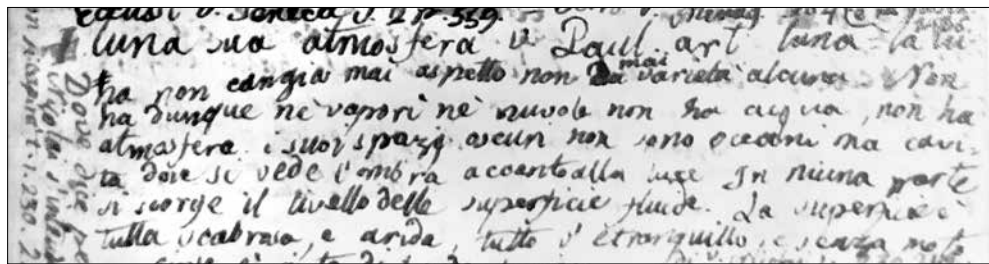 v. Seneca v. 2 p. 559.
luna sua atmosfera v. Paul. art luna la lu-
na non cangia mai aspetto non ha mai varietà alcuna. Non
ha dunque nè vapori nè nuvole non ha acqua, non ha
atmosfera. i suoi spazj oscuri non sono oceani ma cavi-
tà dove si vede l'ombra accanto alla luce In niuna parte
si scorge il livello delle superficie fluide. La superficie è
tutta scabrosa, e arida, tutto v' è tranquillo, e senza moto
Dove
t. 1. 230. 2